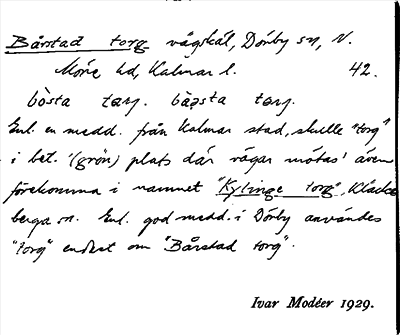 Bårstad torg vägskäl, Dörby sn, N.
Möre hd, Kalmar l. 42.
bòsta tærj. bàpsta tærj.
Enl. en medd. från Kalmar stad, skulle "torg"
i bet. '(grön) plats där vägar mötas' även
förekomma i namnet "Kylinge torg", Kläcke-
berga sn. Enl. god medd. i Dörby användes
"torg" endast om "Bårstad torg".
Ivar Modéer 1929.